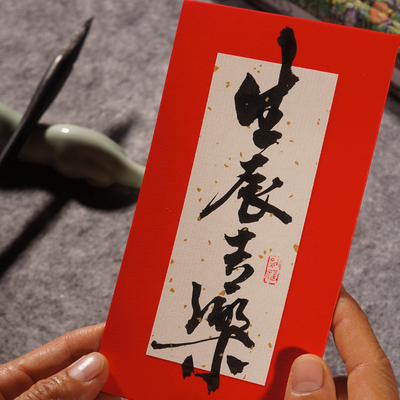 生辰吉樂